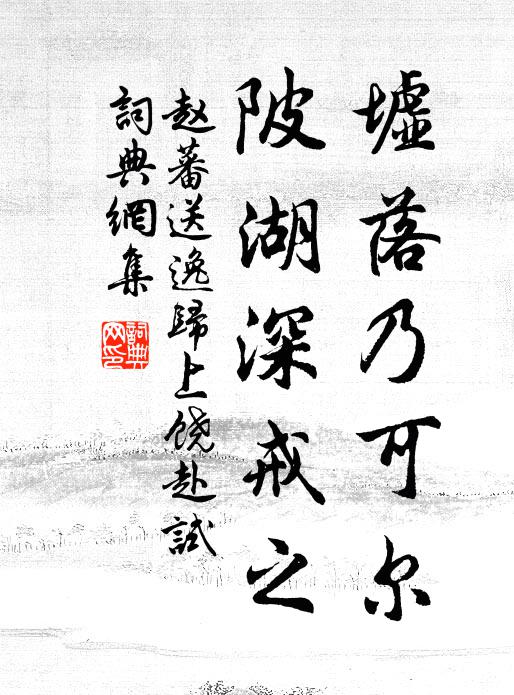 墟落乃可尔
陂湖深戒之
赵蕃送逸歸上饶赴試
詞典網集
詞典網印